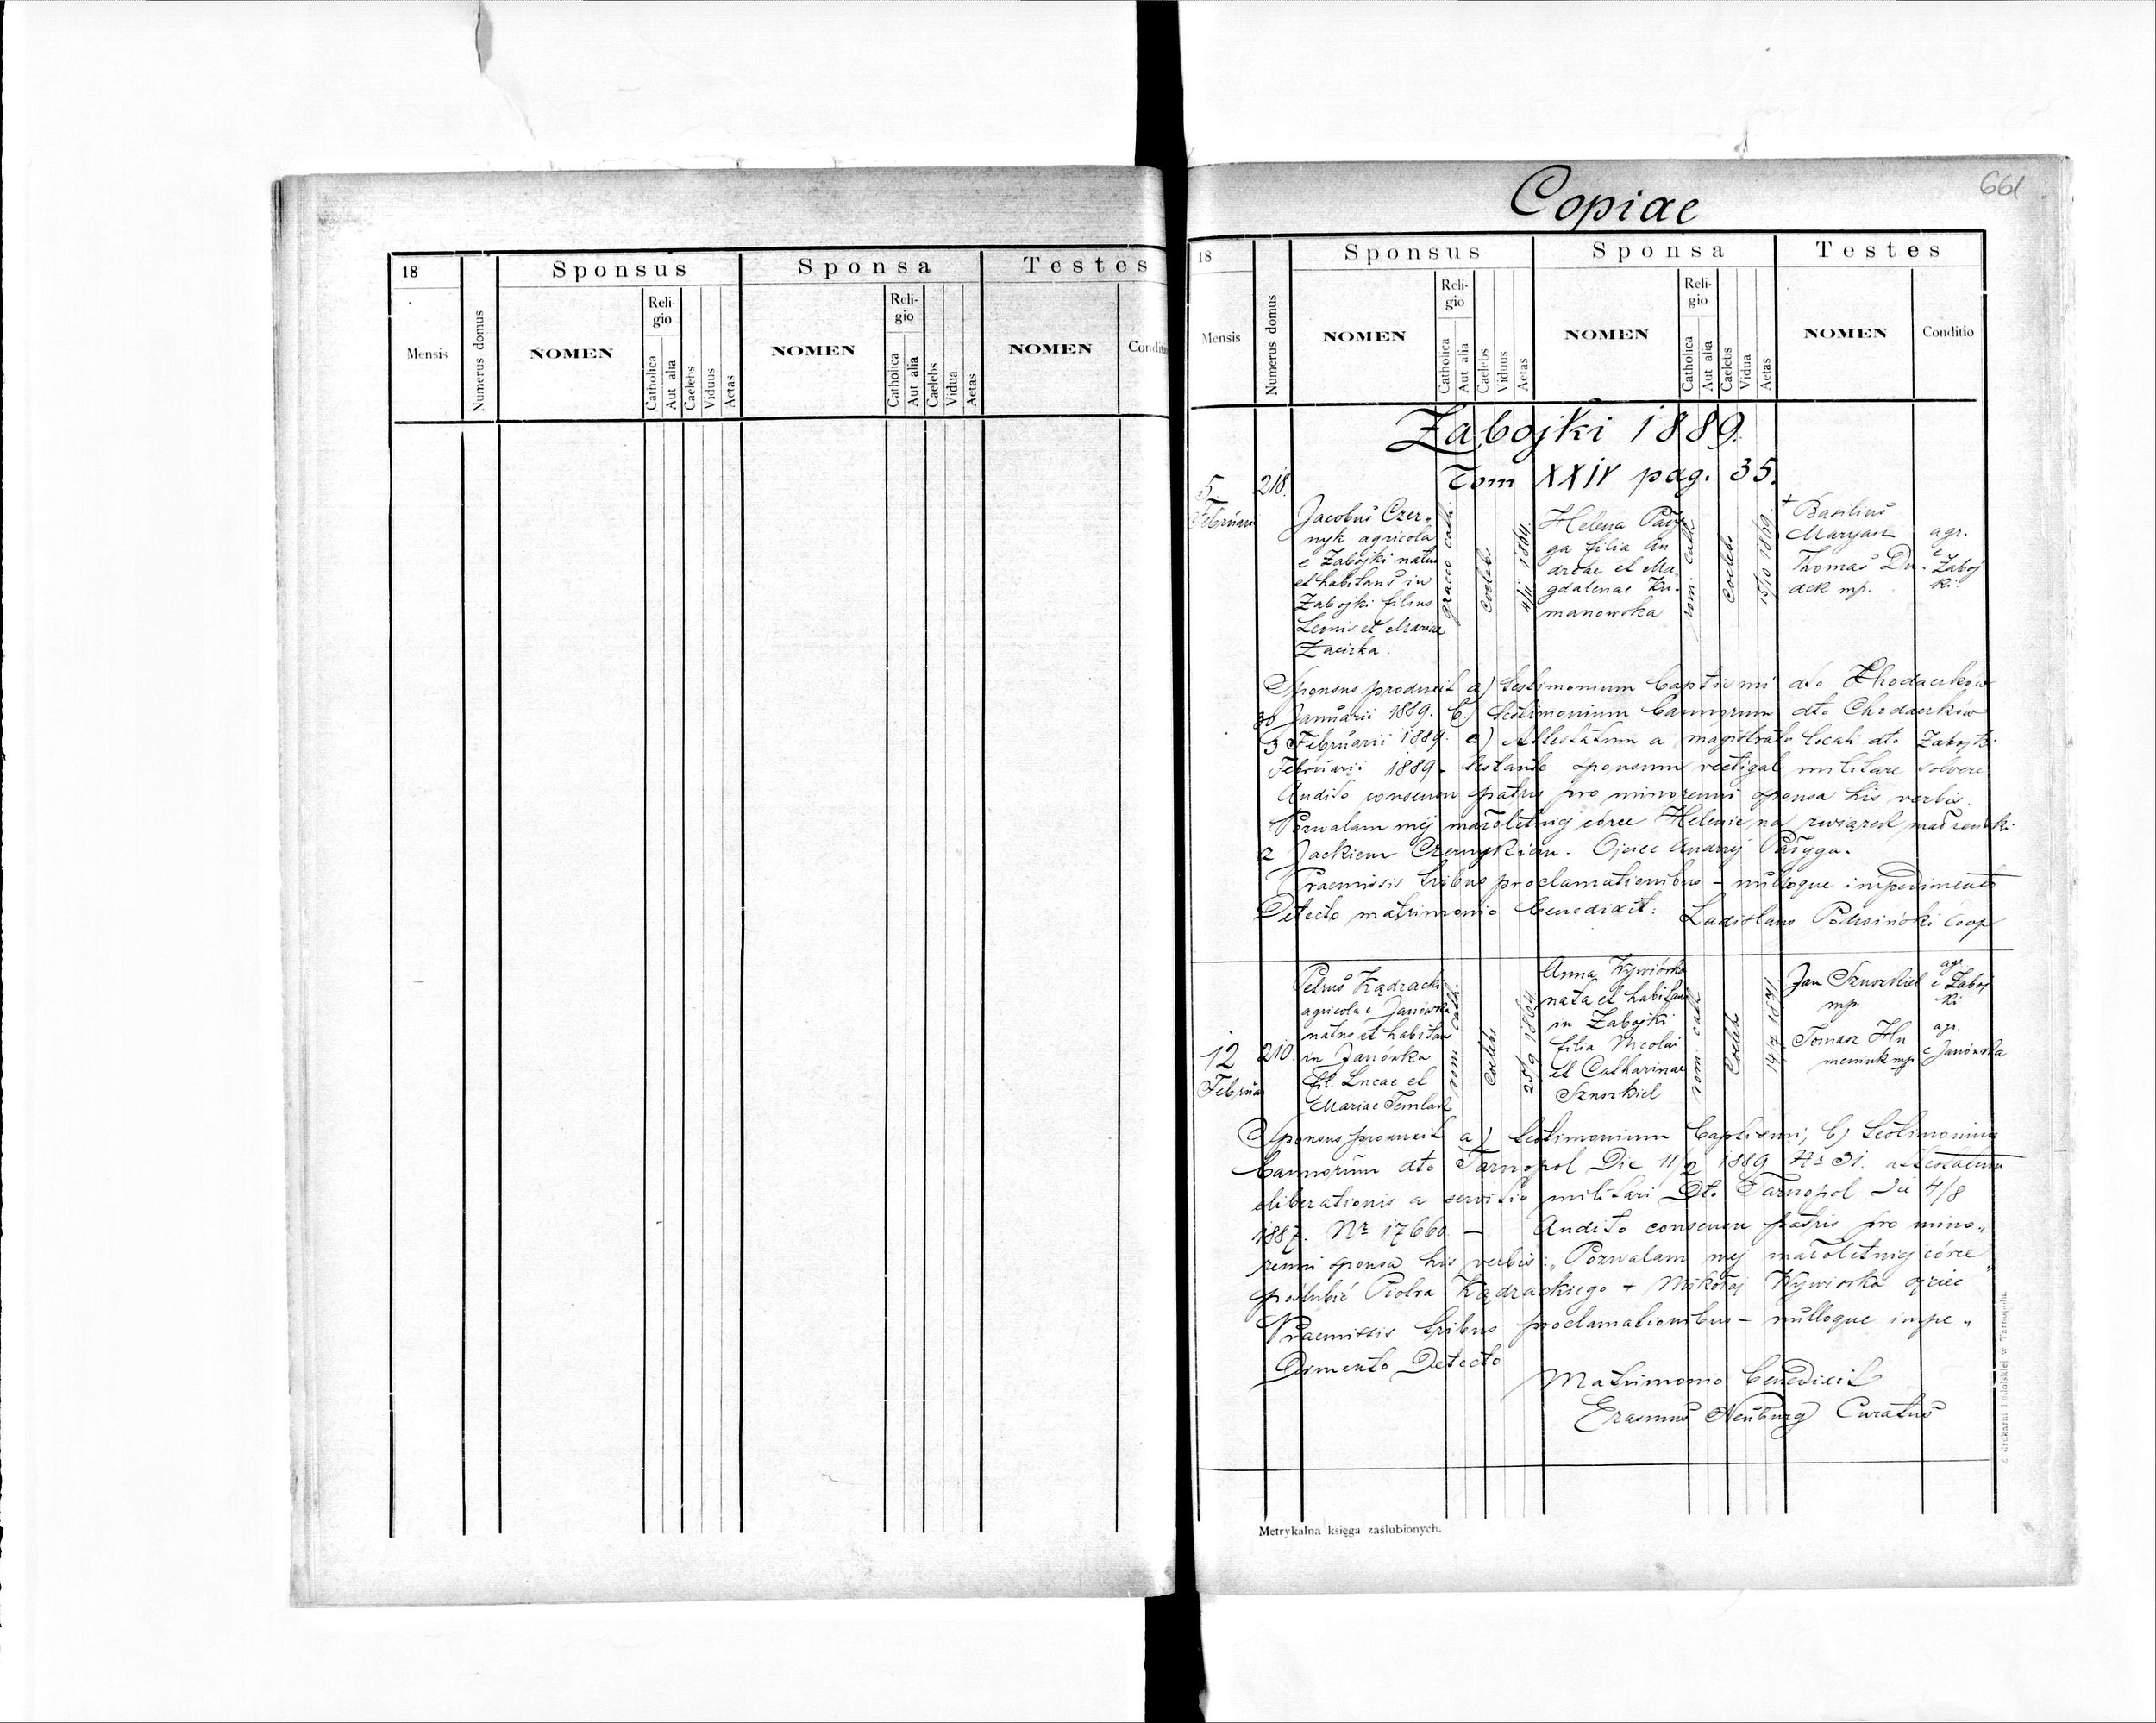 18
Sponsus
Sponsa
Testes
Mensis
Numerus domus
NOMEN
Reli-
gio
Catholica
Aut alia
Caelebs
Viduus
Aetas
NOMEN
Reli-
gio
Catholica
Aut alia
Caelebs
Vidua
Aetas
NOMEN
Copiae
661
18
Sponsus
Sponsa
Testes
Mensis
Numerus domus
NOMEN
Reli-
gio
Catholica
Aut alia
Caelebs
Viduus
Aetas
NOMEN
Reli-
gio
Catholica
Aut alia
Caelebs
Vidua
Aetas
NOMEN
Conditio
Zabojki 1889.
Tom XXIV pag. 35.
5
Februarii
218.
Jacobus Czer„
nyk agricola
e Zabojki natus
et habitans in
Zabojki filius
Leonis et Mariae
Zacirka.
graeco cath.
Coelebs
4/11 1864.
Helena Pasy
ga filia An
dreae et Ma
gdalenae Ku-
manowska
rom. cath
Coelebs
15/10 1869.
+ Basilius
Maryasz
Thomas Du-
dek mp.
agr.
e
Zaboj
ki.
Sponsus produxit a) testimonium baptismi dto Chodaczków
30 Januarii 1889. b) testimonium bannorum dto Chodaczków
3 Februarii 1889. c) Attestatum a magistratu locali dto Zabojki
Februarii 1889 - testante sponsum vectigal militare solvere
Audito consensu patris pro minorenni sponsa his verbis:
Pozwalam mej małoletniej córce Helenie na związek małżeński
z Jackiem Czernykiem. Ojciec Andrzej Pasyga.
Praemissis tribus proclamationibus - nulloque impedimento
Detecto matrimonio benedixit: Ladislaus Podwiński Coop
12
Februa
210.
Petrus Kądracki
agricola e Janówka
natus et habitan
in Janówka
fil. Lucae et
Mariae Temlak
rom cath.
Coelebs
25/9 1864
Anna Wywiórka
nata et habitans
in Zabojki
filia Nicolai
et Catharinae
Sznorkiel
rom cath
Coelebs
14/7 1871
Jan Sznorkiel
mp.
agr.
e Zaboj
ki
Tomasz Hu
meniuk mp
agr.
e Janówka
Sponsus produxit a) testimonium baptismi, b) testimonium
bannorum dto Tarnopol Die 11/2 1889 № 31. attestatum
eliberationis a servitio militari Dto Tarnopol Die 4/8
1887. Nr 17660 - Audito consensu patris pro mino„
renni sponsa his verbis: „Pozwalam mej małoletniej córce
poślubić Piotra Kądrackiego + Mikołaj Wywiorka ojciec"
Praemissis tribus proclamationibus - nulloque impe„
Dimento Detecto
Matrimonio benedixit
Erasmus Neuburg Curatus
Metrykalna księga zaślubionych.
Z drukarni Podolskiej w Tarnopolu.